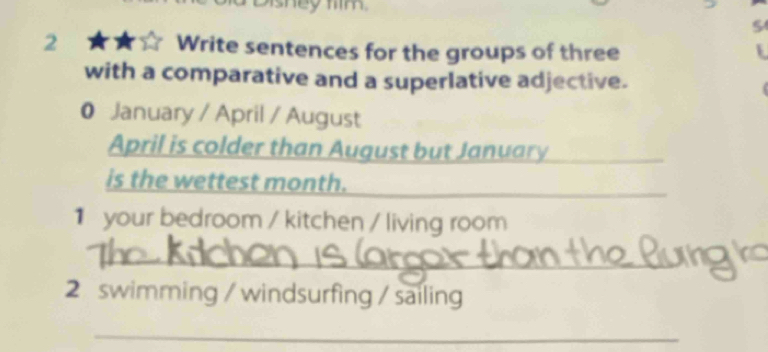 Disney film.
2 ★★☆ Write sentences for the groups of three
with a comparative and a superlative adjective.
0 January / April / August
April is colder than August but January
is the wettest month.
1 your bedroom / kitchen / living room
The kitchen is larger than the living ro
2 swimming / windsurfing / sailing